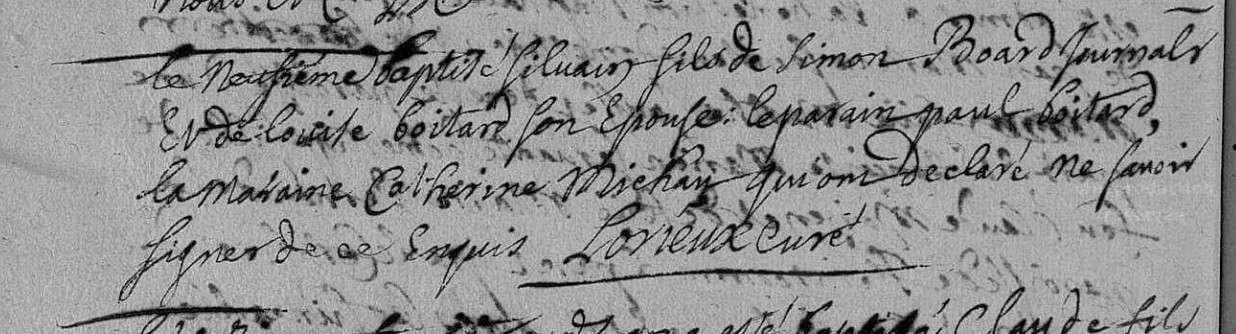 le neufvieme baptisé silvain fils de simon Board Journalr
Et de louise boitard son Epouse. le parain paul boitard,
la maraine Catherine Michau qui ont declaré ne savoir
signer de ce Enquis Lorieux curé
esté baptisé Claude fils